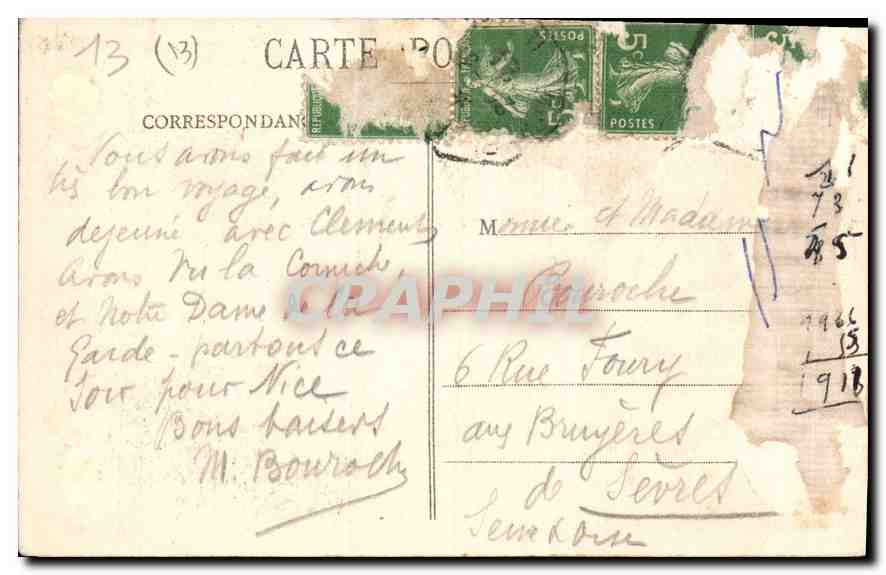 13 (13)
CARTE PO
CORRESPONDANC
Vous avons fait un
très bon voyage, avons
dejeuné avec Clement,
avons vu la Corniche,
et Notre Dame de la
Garde - partons ce
Soir pour Nice
Bons baisers
M. Bouroche
Monsieur et Madame
Bouroche
6 Rue Foury
aux Bruyères
de Sèvres
Seine & Oise
POSTES
5
POSTES
73
1966
15
CPAPHIL